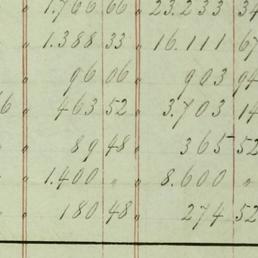 " 1.766 66 " 23.233 34
" 1.388 33 " 16.111 67
" 96 06 " 903 94
6 " 463 52 " 3.703 14
" 89 48 " 365 52
" 1.400 " " 8.600 "
" 180 48 " 274 52